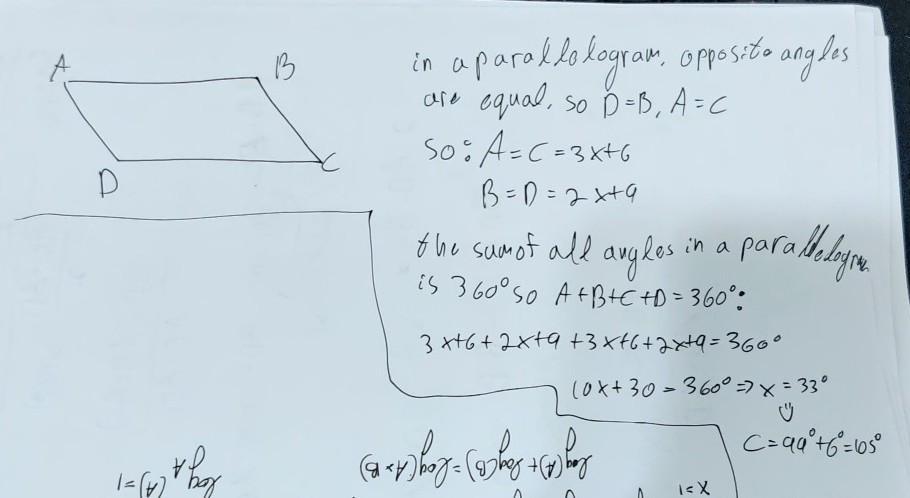 A
B
D
C
in a parallelogram, opposite angles
are equal, so D=B, A=C
so: A=C=3x+6
B=D=2x+9
the sum of all angles in a parallelogram
is 360° so A+B+C+D=360°:
3x+6+2x+9+3x+6+2x+9=360°
10x+30=360° ⇒ x=33°
C=99°+6°=105°
log(A)+log(B)=log(A×B)
log_A(A)=1
x=1